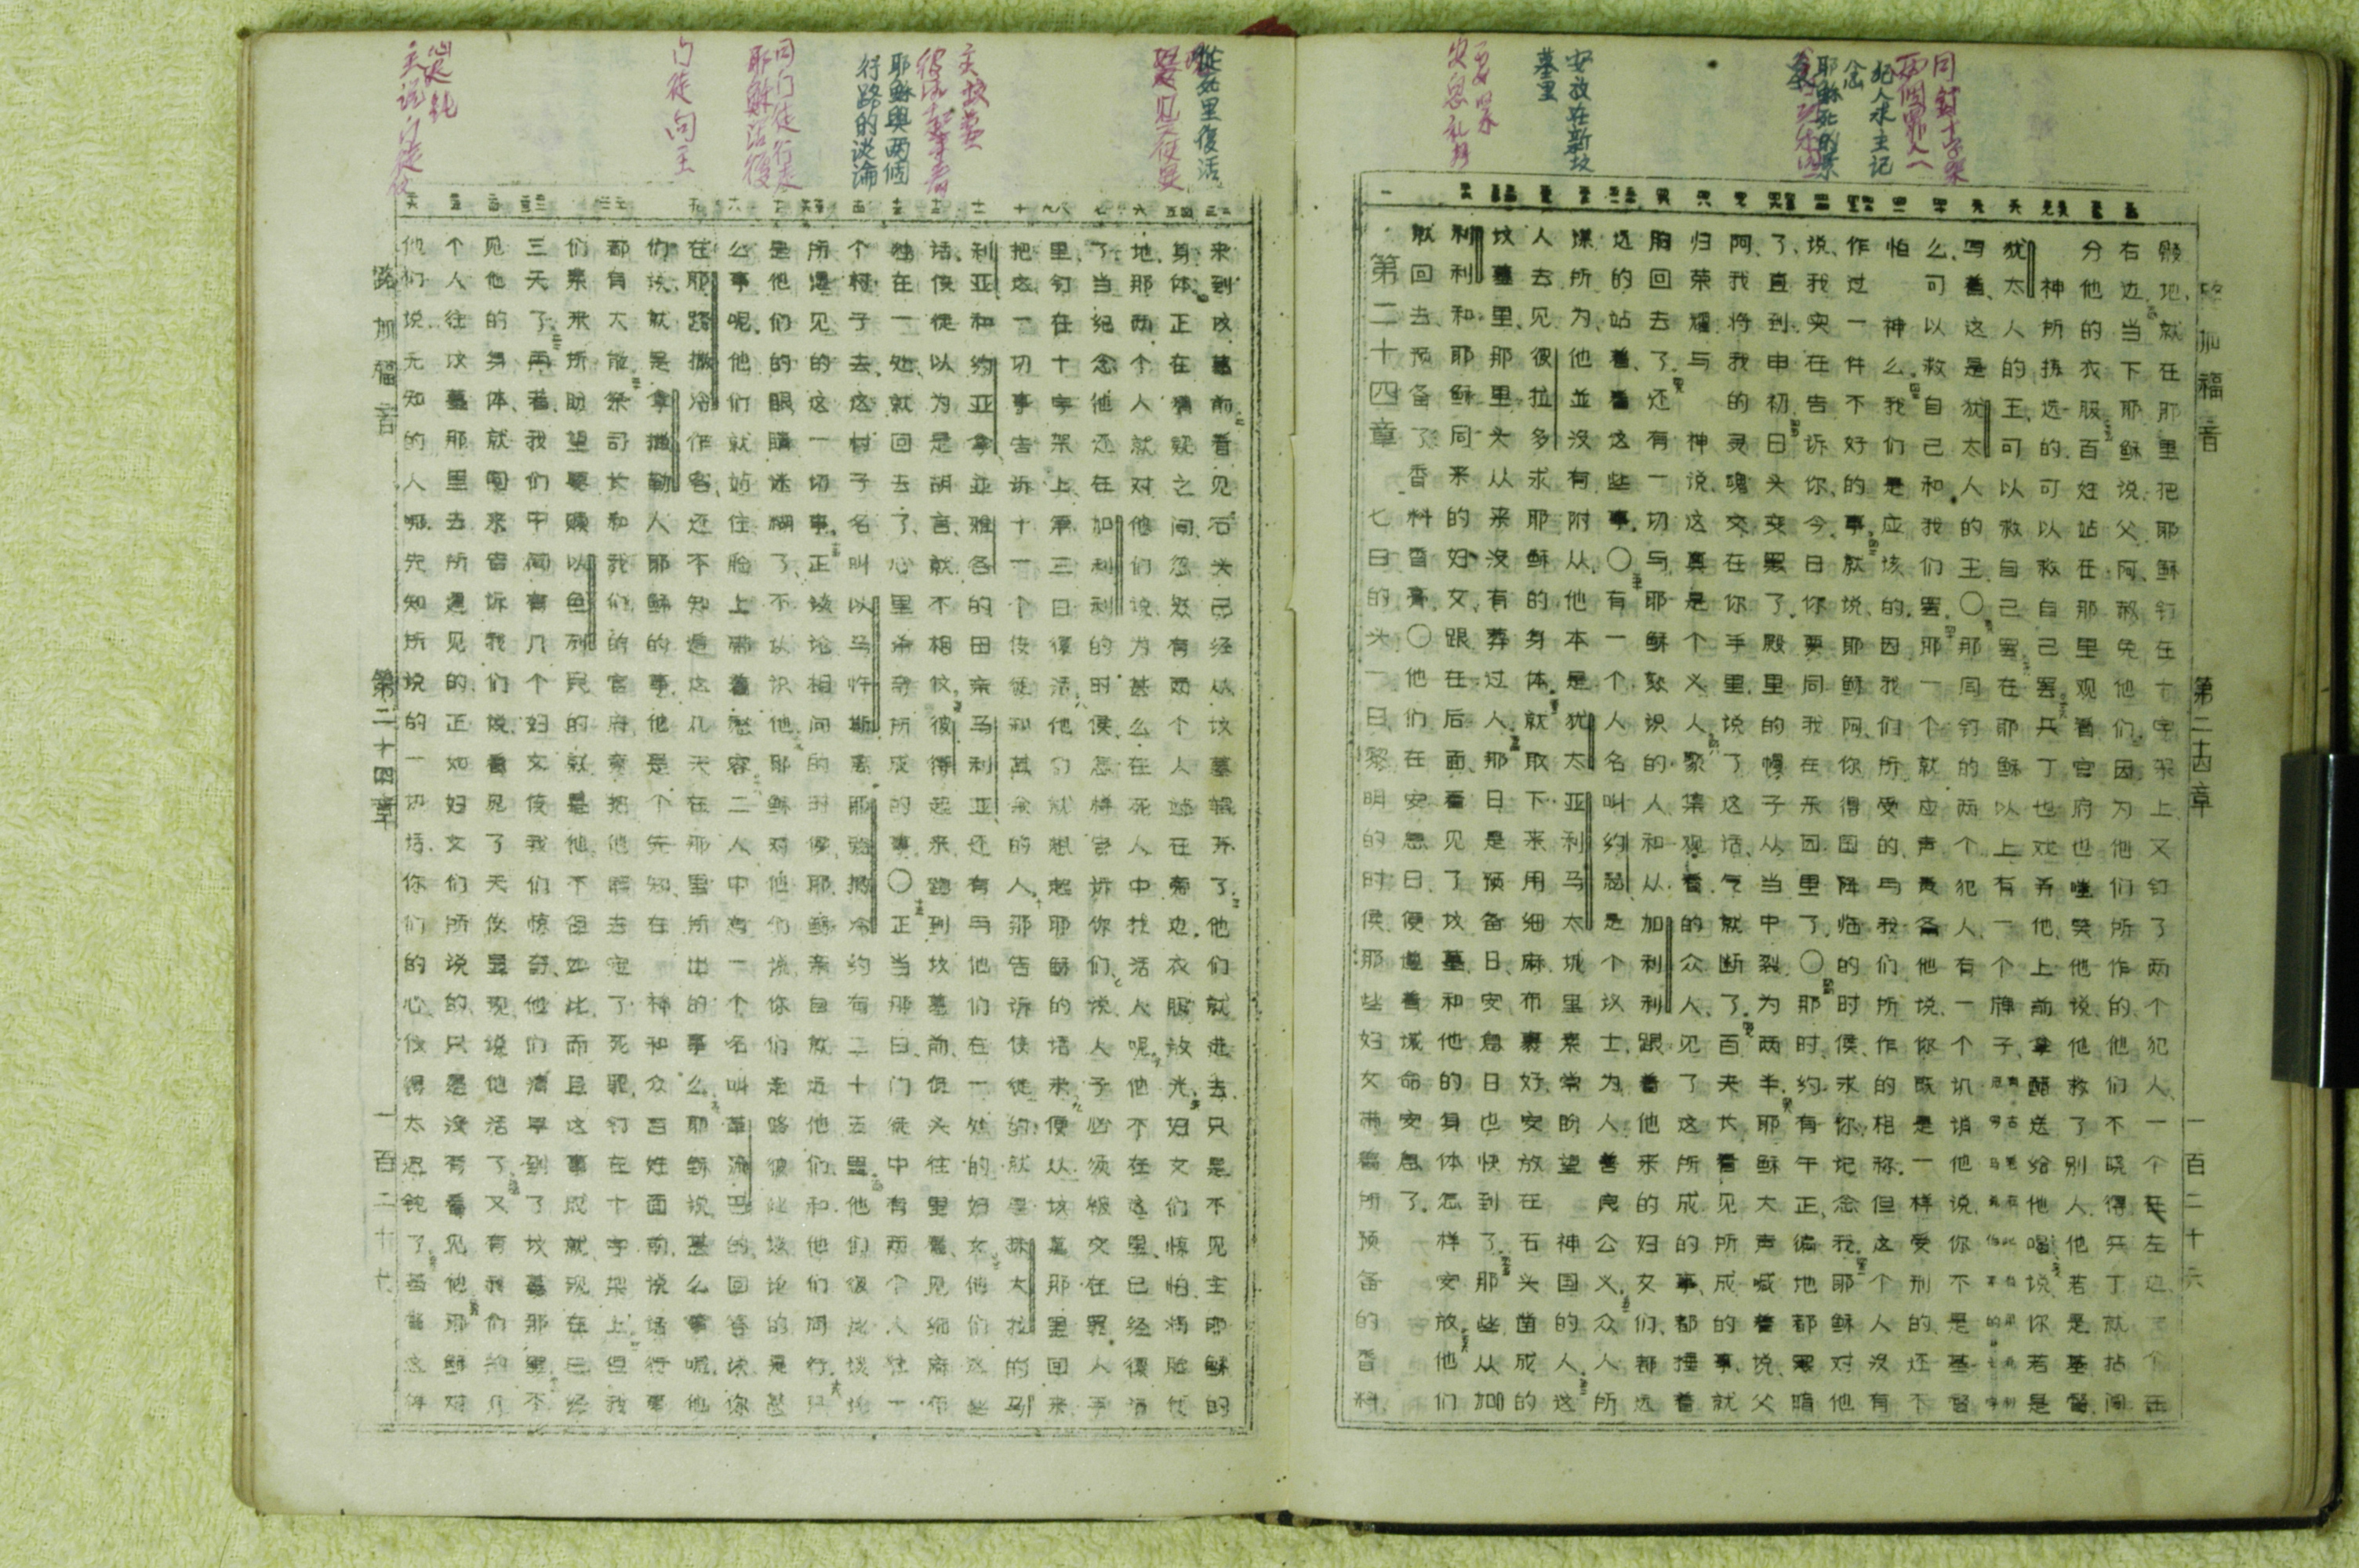 同钉十字架
两个罪人
犯人求主记
念
耶稣死的景
安放在新坟
墓里
路加福音 第二十四章 一百二十六
毁地、就在那里把耶稣钉在十字架上又钉了两个犯人、一个在左边一个在
右边、当下耶稣说、父阿、赦免他们、因为他们所作的他们不晓得兵丁就拈阄
分他的衣服百姓站在那里观看官府也嗤笑他说、他救了别人、他若是基督、
神所拣选的、可以救自己罢、兵丁也戏弄他、上前拿醋送给他喝说、你若是
犹太人的王、可以救自己罢、在耶稣以上有一个牌子、
写着、这是犹太人的王、〇那同钉的两个犯人、有一个讥诮他说、你不是基督
么、可以救自己和我们罢、那一个就应声责备他说、你既是一样受刑的、还不
怕 神么、我们是应该的、因我们所受的、与我们所作的相称、但这个人没有
作过一件不好的事、就说、耶稣阿、你得国降临的时侯、求你记念我、耶稣对他
说、我实在告诉你、今日你要同我在乐园里了、〇那时、约有午正、遍地都黑暗
了、直到申初日头变黑了、殿里的幔子从当中裂为两半、耶稣大声喊着说、父
阿、我将我的灵魂交在你手里、说了这话、气就断了、百夫长看见所成的事、就
归荣耀与 神说、这真是个义人、聚集观看的众人、见了这所成的事、都捶着
胸回去了、还有一切与耶稣熟识的人和从加利利跟着他来的妇女们、都远
远的站着、看这些事、〇有一个人名叫约瑟是个议士、为人善良公义、众人所
谋所为、他並没有附从、他本是犹太亚利马太城里素常盼望 神国的人、这
人去见彼拉多求耶稣的身体、就取下来用细麻布裹好、安放在石头凿成的
坟墓里、那里头从来没有葬过人、那日是预备日、安息日也快到了、那些从加
利利和耶稣同来的妇女、跟在后面、看见了坟墓、和他的身体怎样安放、他们
就回去、预备了香料香膏、〇他们在安息日、便遵着诫命安息了、
第二十四章 七日的头一日、黎明的时侯、那些妇女带着所预备的香料、
從死里復活
主坟墓
耶穌與两個
行路的谈論
同门徒行走
耶穌活復
门徒问主
路加福音 第二十四章 一百二十七
来到坟墓前、看见石头已经从坟墓辊开了、他们就进去、只是不见主耶稣的
身体、正在猜疑之间、忽然有两个人站在旁边、衣服放光、妇女们惊怕、将脸伏
地、那两个人就对他们说、为甚么在死人中找活人呢、他不在这里、已经復活
了、当纪念他还在加利利的时侯、怎样告诉你们、说、人子必须被交在罪人手
里、钉在十字架上、第三日復活、他们就想起耶稣的话来、便从坟墓那里回来、
把这一切事告诉十一个使徒和其余的人、那告诉使徒的、就是抹大拉的马
利亚和约亚拿、並雅各的母亲马利亚、还有与他们在一处的妇女、他们这些
话、使徒以为是胡言、就不相信、彼得起来、跑到坟墓前、低头往里看、见细麻布
独在一处、就回去了、心里希奇所成的事、〇正当那日、门徒中有两个人、往一
个村子去、这村子名叫以马忤斯、离耶路撒冷约有二十五里、他们彼此谈论
所遇见的这一切事、正谈论相问的时侯、耶稣亲自就近他们、和他们同行、只
是他们的眼睛迷糊了、不认识他、耶稣对他们说、你们走路彼此谈论的是甚
么事呢、他们就站住、脸上带着愁容、二人中有一个名叫革流巴的回答说、你
在耶路撒冷作客、还不知道这几天在那里所出的事么、耶稣说、甚么事呢、他
们说、就是拿撒勒人耶稣的事、他是个先知、在 神和众百姓面前、说话行事
都有大能、祭司长和我们的官府、竟把他解去定了死罪、钉在十字架上、但我
们素来所盼望要赎以色列民的就是他、不但如此、而且这事成就、现在已经
三天了、再者、我们中间有几个妇女使我们惊奇、他们清早到了坟墓那里、不
见他的身体、就回来告诉我们说、看见了天使显现、说他活了、又有我们的几
个人、往坟墓那里去、所遇见的、正如妇女们所说的、只是没有看见他、耶稣对
他们说、无知的人哪、先知所说的一切话、你们的心、信得太迟钝了、基督这样